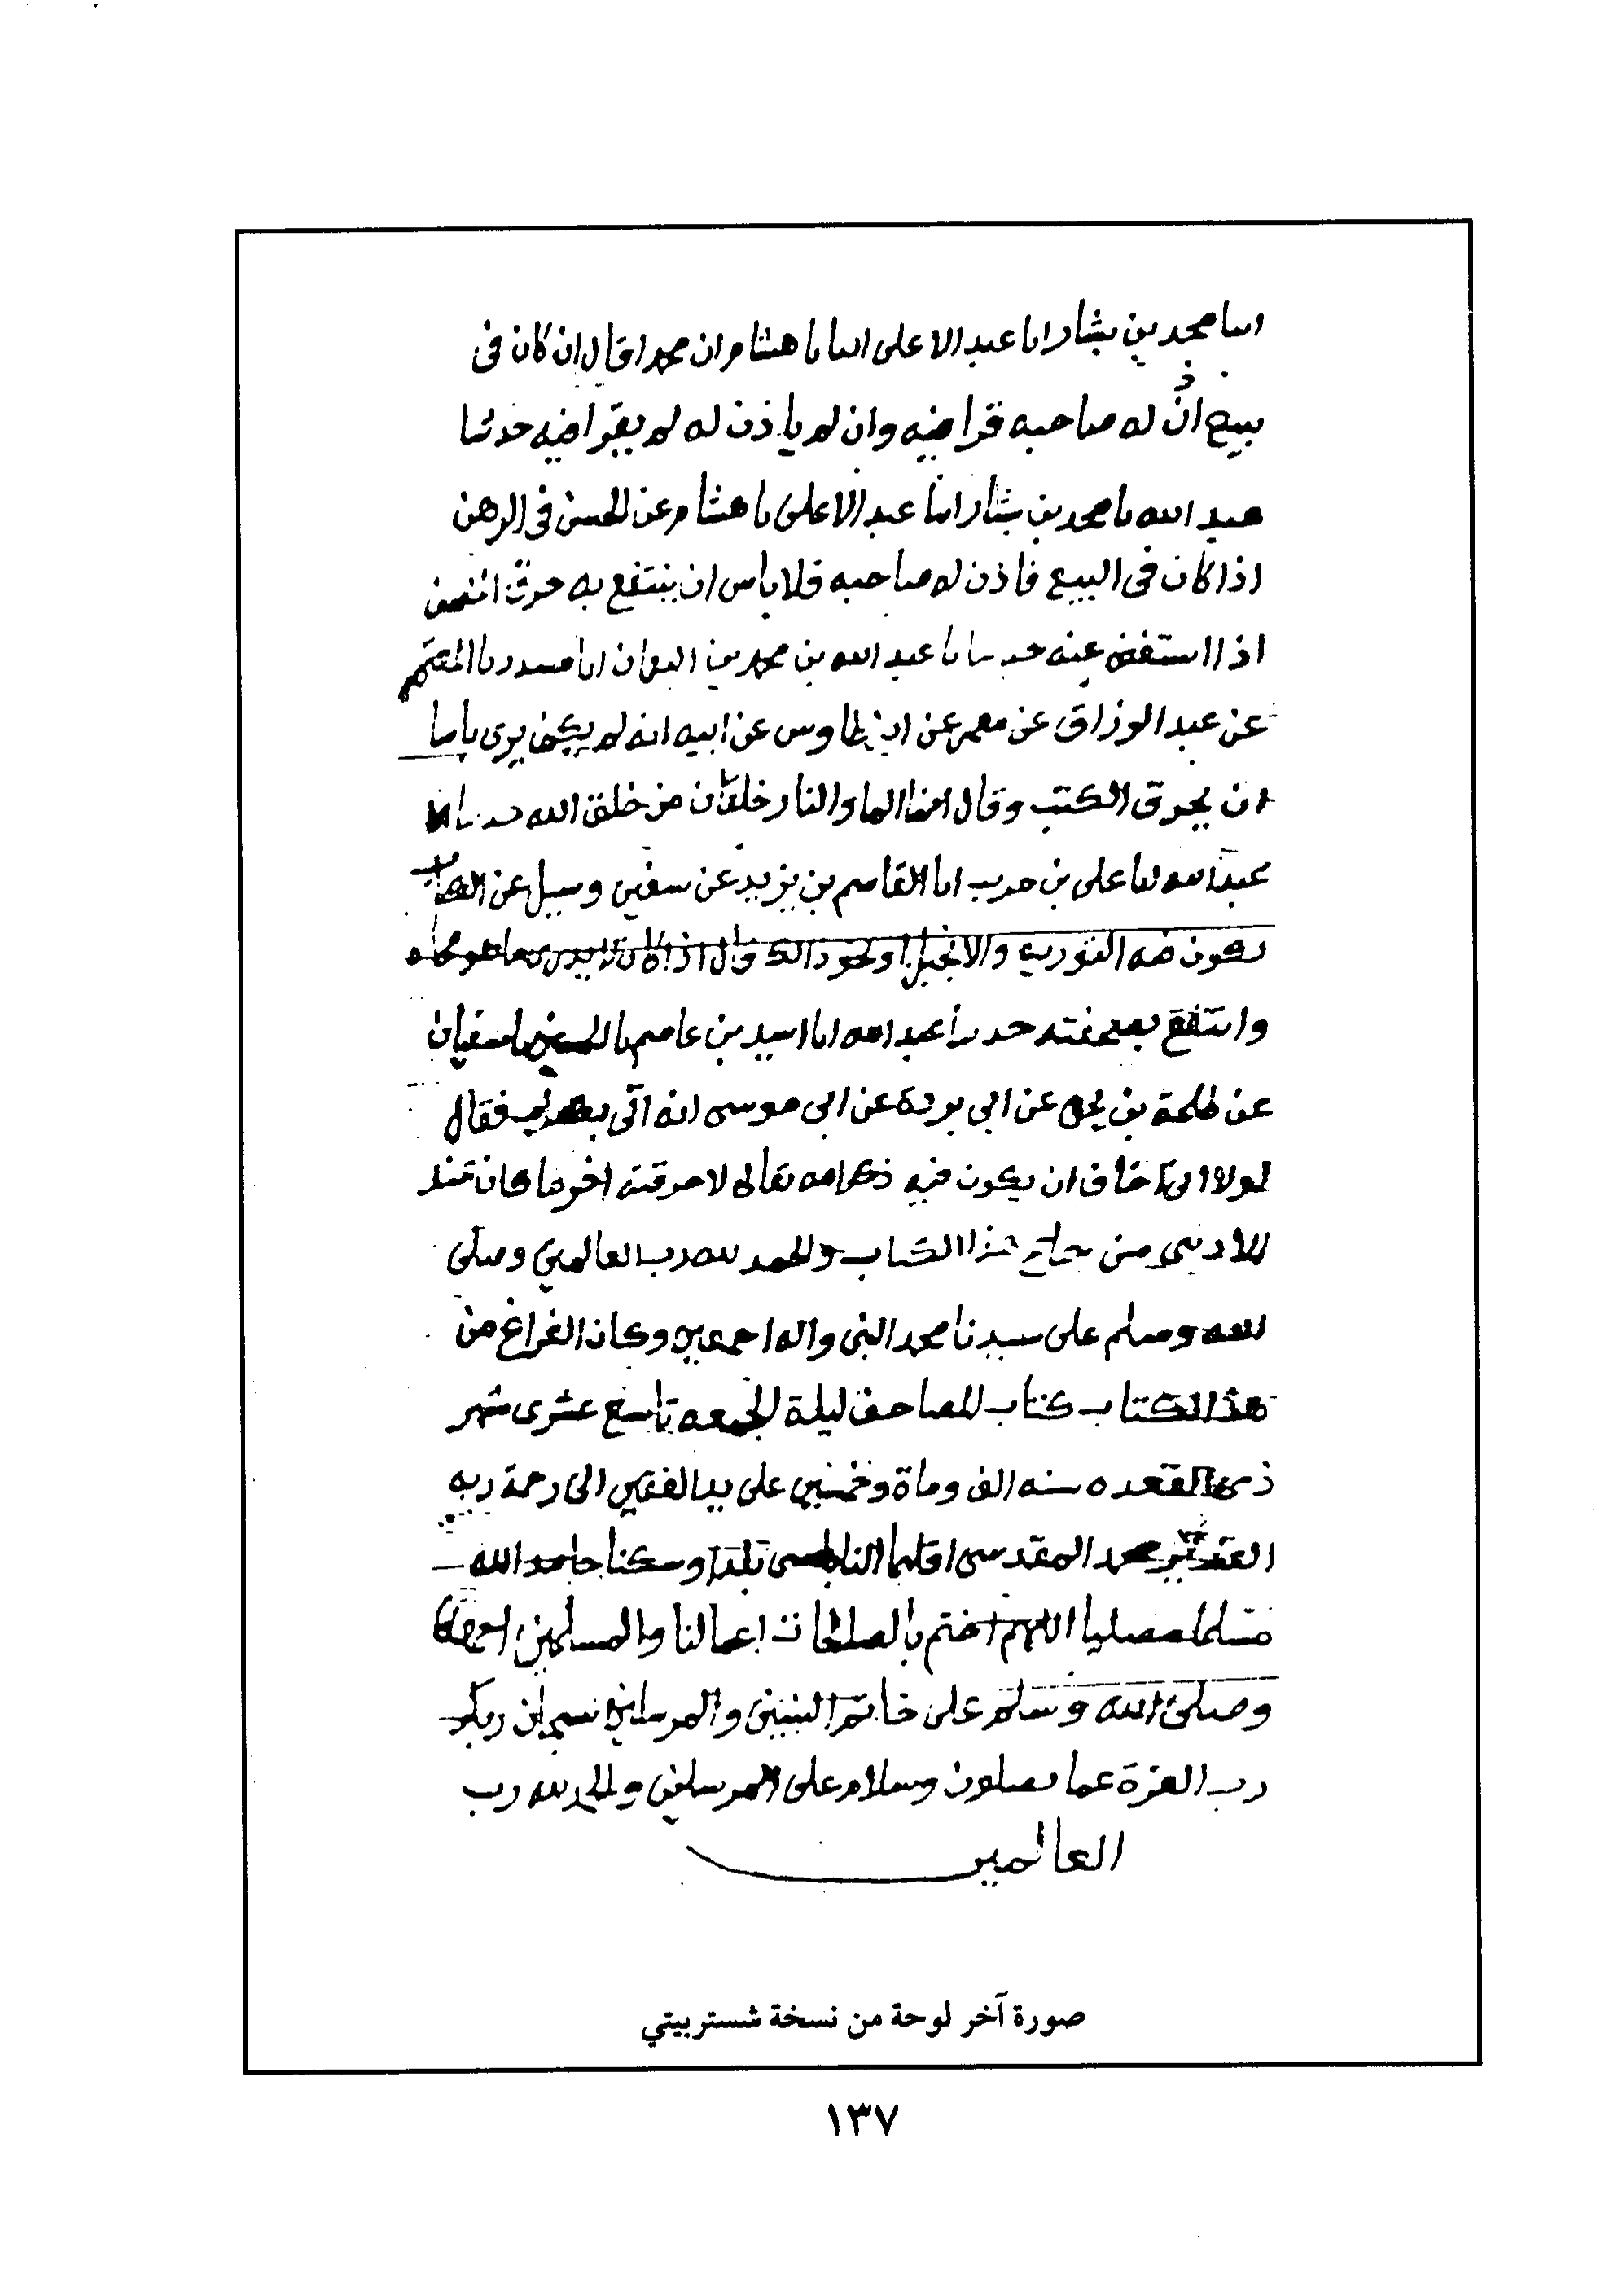 انبا محمد بن بشار انا عبد الاعلى انبا نا هشام ان محمدا قال ان كان في
بيع اذن له صاحبه قرا فيه وان لم ياذن له لم يقرا فيه حدثنا
عبد الله نا محمد بن بشار انبا عبد الاعلى نا هشام عن الحسن في الرهن
اذا كان في البيع فاذن له صاحبه فلا باس ان ينتفع به حرق المصحف
اذا استغنى عنه حدثنا عبد الله بن محمد بن النعمان انا مسدد نا المعتمر
عن عبد الرزاق عن معمر عن ابن طاوس عن ابيه انه لم يكن يرى باسا
ان يحرق الكتب وقال انما الما والنار خلقان من خلق الله حدثنا
عبد الله نا على بن حرب انا القاسم بن يزيد عن سفين وسيل عن الكتاب
يكون فيه التورية والانجيل او نحو ذلك قال اذا كان لا يدرى ما هو محاه
وانتفع بصحيفته حدثنا عبد الله انا اسيد بن عاصم نا الحسين نا سفيان
عن طلحة بن يحيى عن ابي بردة عن ابي موسى انه اتى بكتاب فقال
لولا اني اخاف ان يكون فيه ذكر الله تعالى لاحرقته اخر ما كان عند
من هذا الكتاب والحمد لله رب العالمين وصلى
الله وسلم على سيدنا محمد النبى واله اجمعين وكان الفراغ من
هذا الكتاب كتاب المصاحف ليلة الجمعه تاسع عشرى شهر
ذى القعده سنه الف وماة وخمسين على يد الفقير الى رحمة ربه
محمد المقدسى اقليما النابلسى بلدا وسكنا حامدا لله
مسلما مصليا اللهم اختم بالصالحات اعمالنا والمسلمين
وصلى الله وسلم على خاتم النبيين والمرسلين سبحان ربك
رب العزة عما يصفون وسلام على المرسلين والحمد لله رب
العالمين
صورة آخر لوحة من نسخة شستربيتي
١٣٧